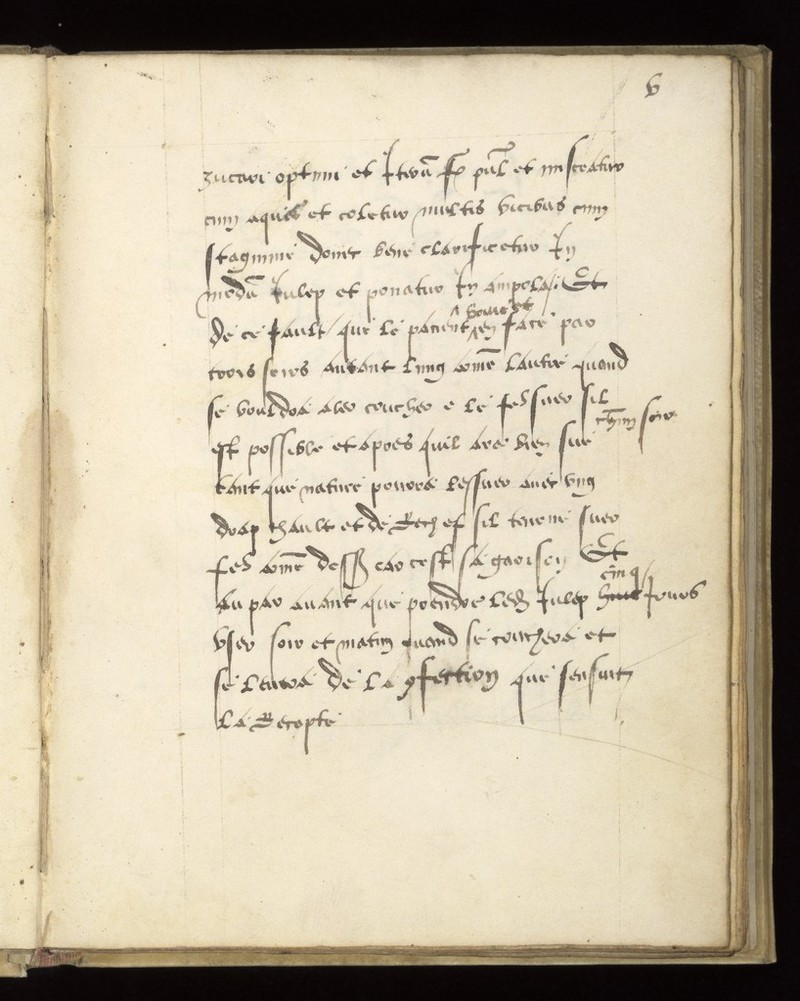 v
zucari optimi et et misceatur
cum aquis et coletur multis vicibus cum
stagmine donec bene clarificetur In
modū Iulep et ponatur In ampola / Et
de ce fault que le pacient boive et en face par
trois soirs autant lung come lautre quand
se vouldra aler coucher e le suer sil
chūn soir
est possible et apres quil ara bien sue
tant que nature pourra lessuer avec ung
drap chault et de Rechef sil tourne suer
come car cest sa garison Et
cinq
au par avant que prendre led Iulep huit Jours
user soir et matin quand se couchera et
se levera de la 9fection que sensuit
la Recepte